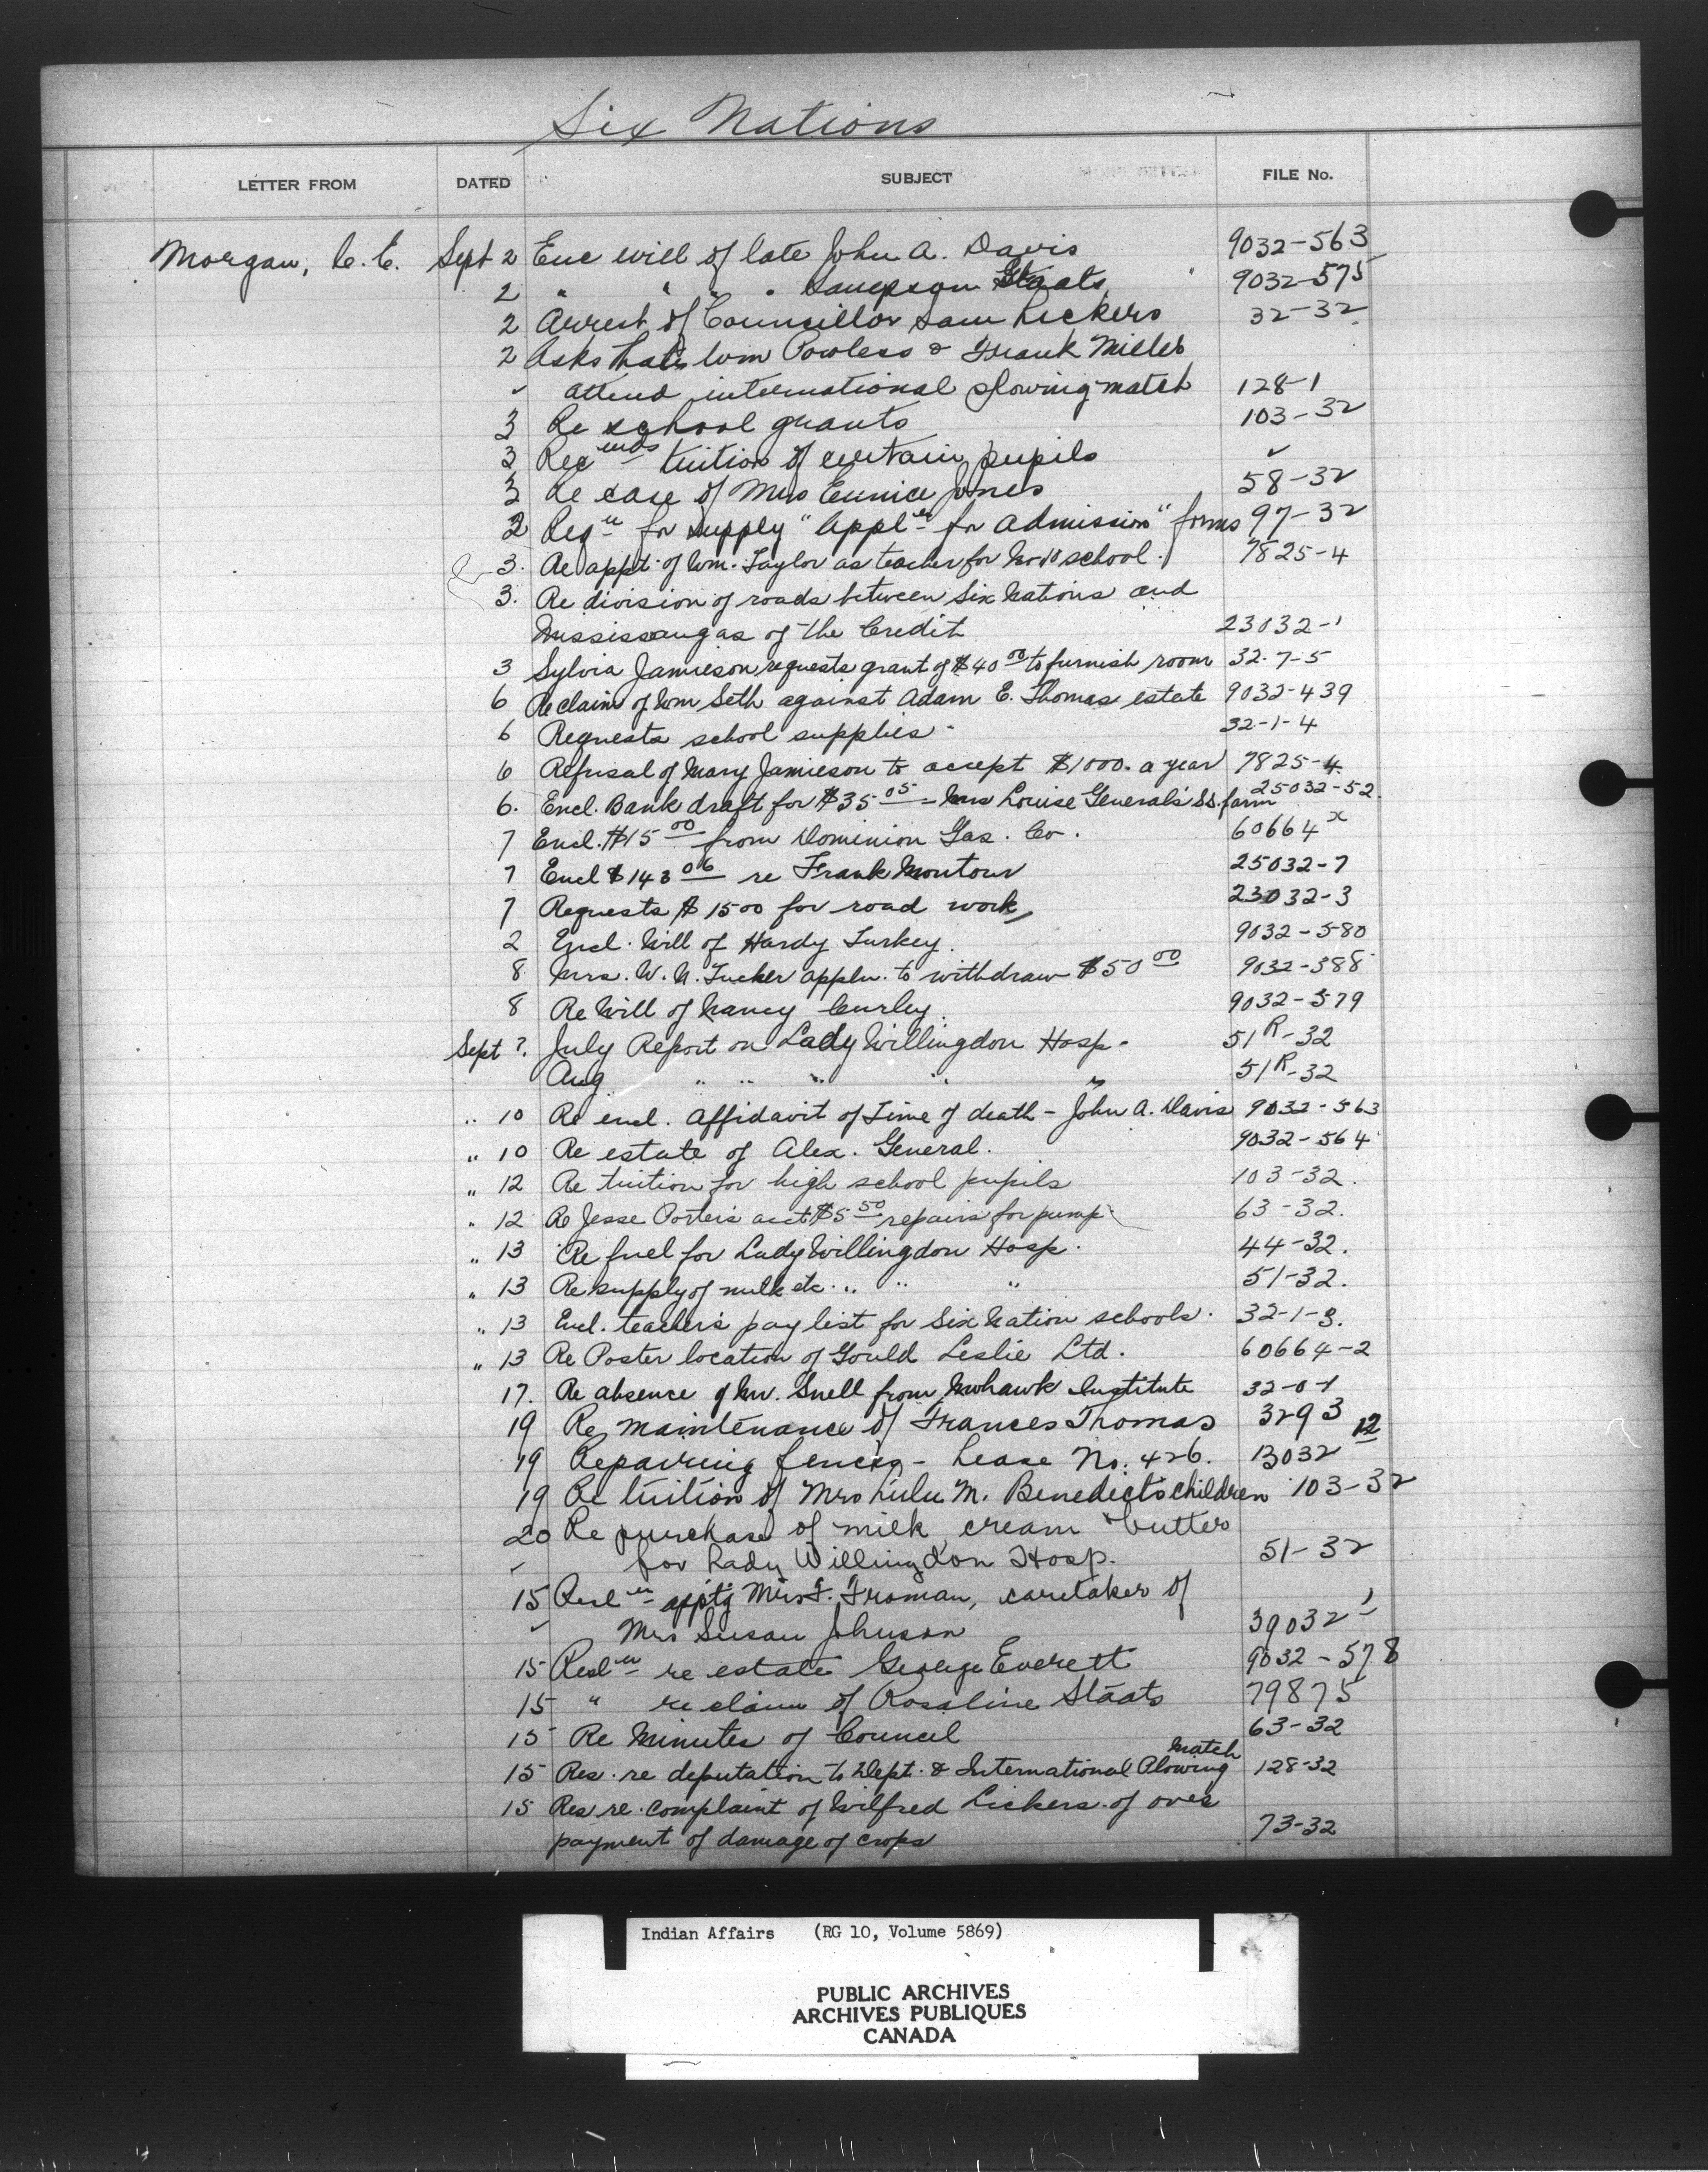 Six Nations
LETTER FROM DATED SUBJECT FILE No.
Morgan, C. E. Sept 2 Enc will of late John A. Davis 9032-563
2 " " " " Sampson Staats 9032-575
2 Arrest of Councillor Sam Lickers 32-32
2 Asks that Wm Powless & Frank Miller
" attend international plowing match 128-1
3 Re school grants 103-32
3 Recmds tuition of certain pupils "
3 Re case of Mrs Eunice Jones 58-32
2 Reqn for supply "Appln for Admission" forms 97-32
3. Re appt. of Wm. Taylor as teacher for No 10 school. 7825-4
3. Re division of roads between Six Nations and
Mississaugas of the Credit 23032-1
3 Sylvia Jamieson requests grant of $40 00 to furnish room 32-7-5
6 Re claim of Wm Seth against Adam E. Thomas estate 9032-439
6 Requests school supplies - 32-1-4
6 Refusal of Mary Jamieson to accept $1000. a year 7825-4
6. Encl. Bank draft for $35 05 - Mrs Louise General's S.S. farm 25032-52
7 Encl. $15 00 from Dominion Gas. Co. 60664 x
7 Encl $143 06 re Frank Montour 25032-7
7 Requests $1500 for road work 23032-3
2 Encl. Will of Hardy Turkey. 9032-580
8 Mrs. W. N. Tucker appln. to withdraw $50 00 9032-388
8 Re Will of Nancy Curley. 9032-579
Sept ?. July Report on Lady Willingdon Hosp- 51R-32
Aug " " " " " 51R-32
.. 10 Re encl. Affidavit of Time of death - John A. Davis 9032-563
" 10 Re estate of Alex. General. 9032-564
" 12 Re tuition for high school pupils 103-32.
" 12 Re Jesse Porter's acct $5 50 repairs for pump 63-32.
" 13 Re fuel for Lady Willingdon Hosp. 44-32.
" 13 Re supply of milk etc. " " " 51-32.
" 13 Encl. teacher's pay list for Six Nation schools. 32-1-3.
" 13 Re Poster location of Gould Leslie Ltd. 60664-2
17. Re absence of Mr. Snell from Mohawk Institute 32-0-1
19 Re maintenance of Frances Thomas 3293 12
19 Repairing fences - Lease No. 426. 13032
19 Re tuition of Mrs Lulu M. Benedict's children 103-32
20 Re purchase of milk, cream & butter
" for Lady Willingdon Hosp. 51-32
15 Resln apptg Mrs F. Froman, caretaker of
" Mrs Susan Johnson 39032-1
15 Resln re estate George Everett 9032-578
15 " re claim of Rosaline Staats 79875
15 Re Minutes of Council 63-32
15 Res. re deputation to Dept. & International Plowing Match 128-32
15 Res re. complaint of Wilfred Lickers of over
payment of damage of crops 73-32
Indian Affairs (RG 10, Volume 5869)
PUBLIC ARCHIVES
ARCHIVES PUBLIQUES
CANADA